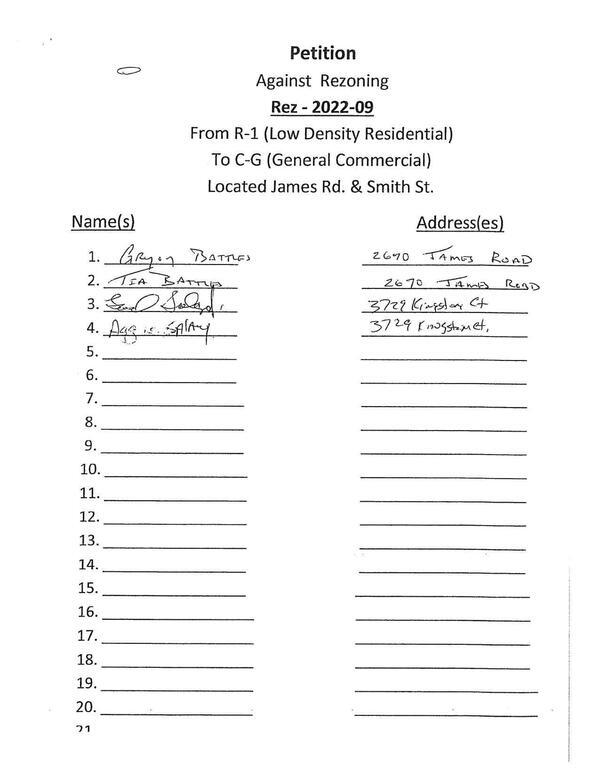 Petition
Against Rezoning
Rez - 2022-09
From R-1 (Low Density Residential)
To C-G (General Commercial)
Located James Rd. & Smith St.
Name(s) Address(es)
1. BATTLES 2670 JAMES ROAD
2. TIA BATTLES 2670 JAMES ROAD
3. 3729 Kingston Ct
4. SALARY 3729 Kingston Ct.
5.
6.
7.
8.
9.
10.
11.
12.
13.
14.
15.
16.
17.
18.
19.
20.
21